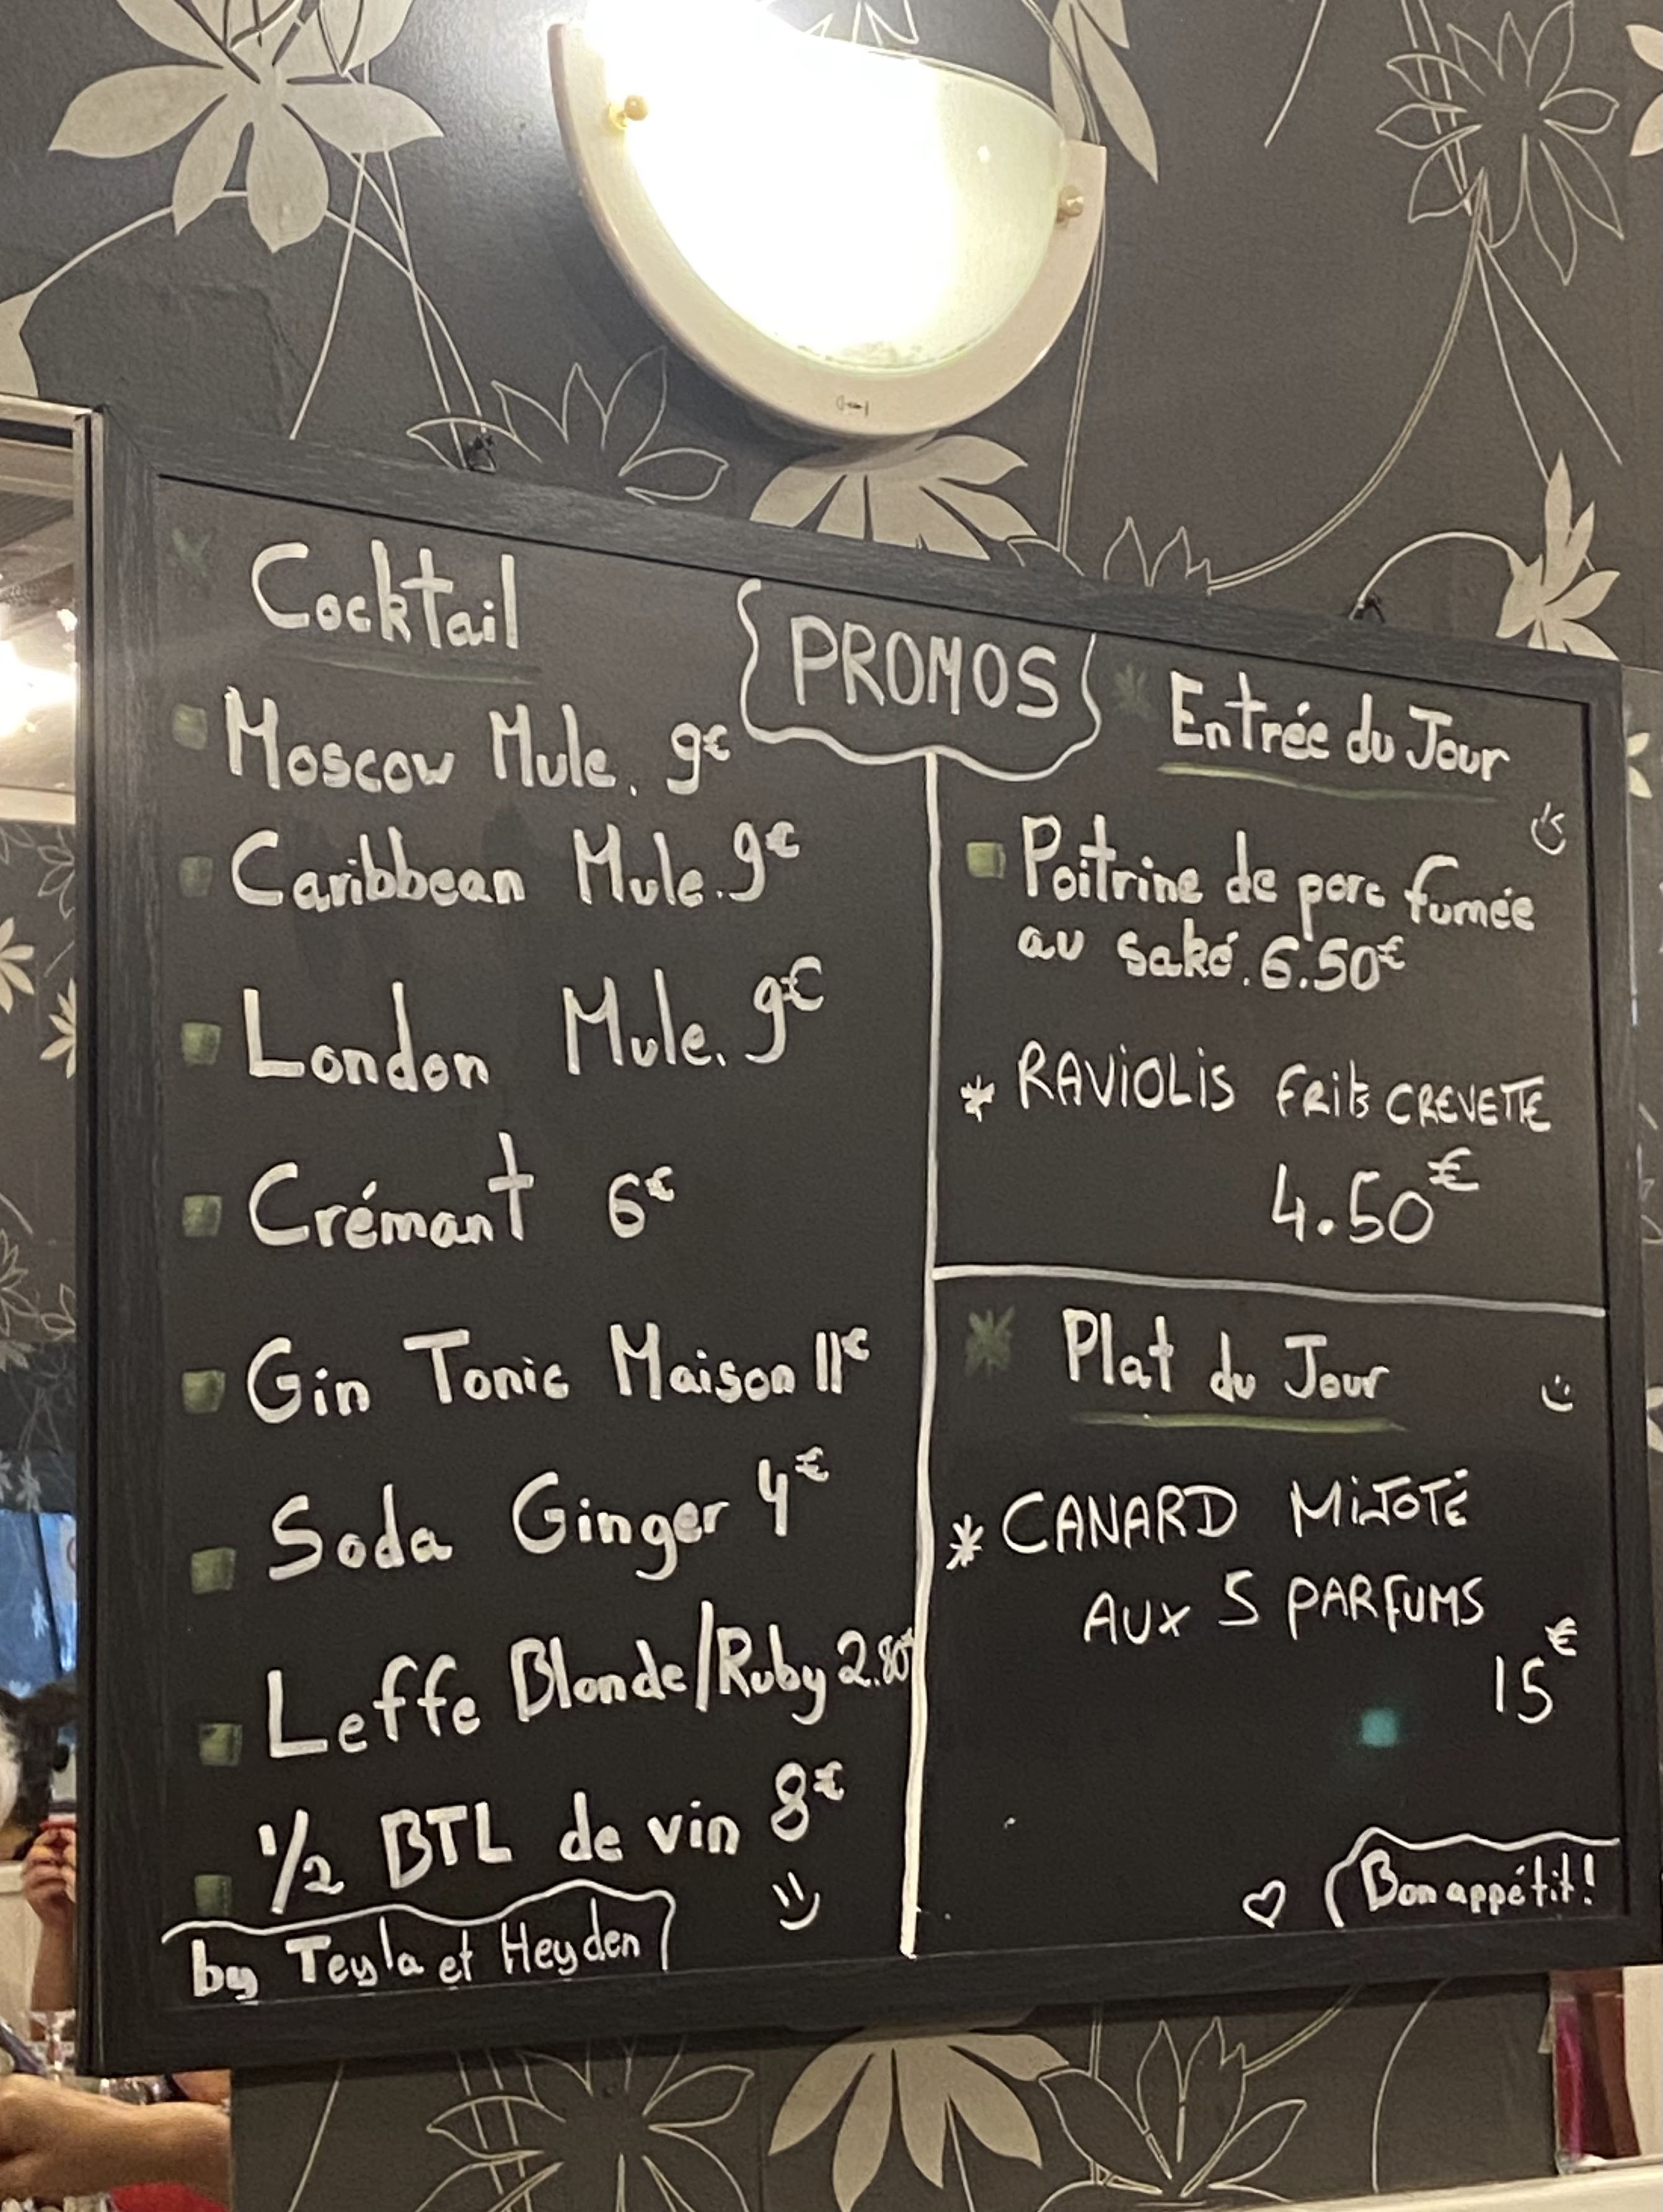 PROMOS
Cocktail
Moscow Mule. 9€
Caribbean Mule. 9€
London Mule. 9€
Crémant 6€
Gin Tonic Maison 11€
Soda Ginger 4€
Leffe Blonde/Ruby 2.80€
1/2 BTL de vin 8€
by Teyla et Heyden
Entrée du Jour
Poitrine de porc fumée
au saké. 6.50€
* RAViOLiS Frits CREVETTE
4.50€
Plat du Jour
* CANARD MiJOTÉ
AUX 5 PARFUMS
15€
Bon appétit!